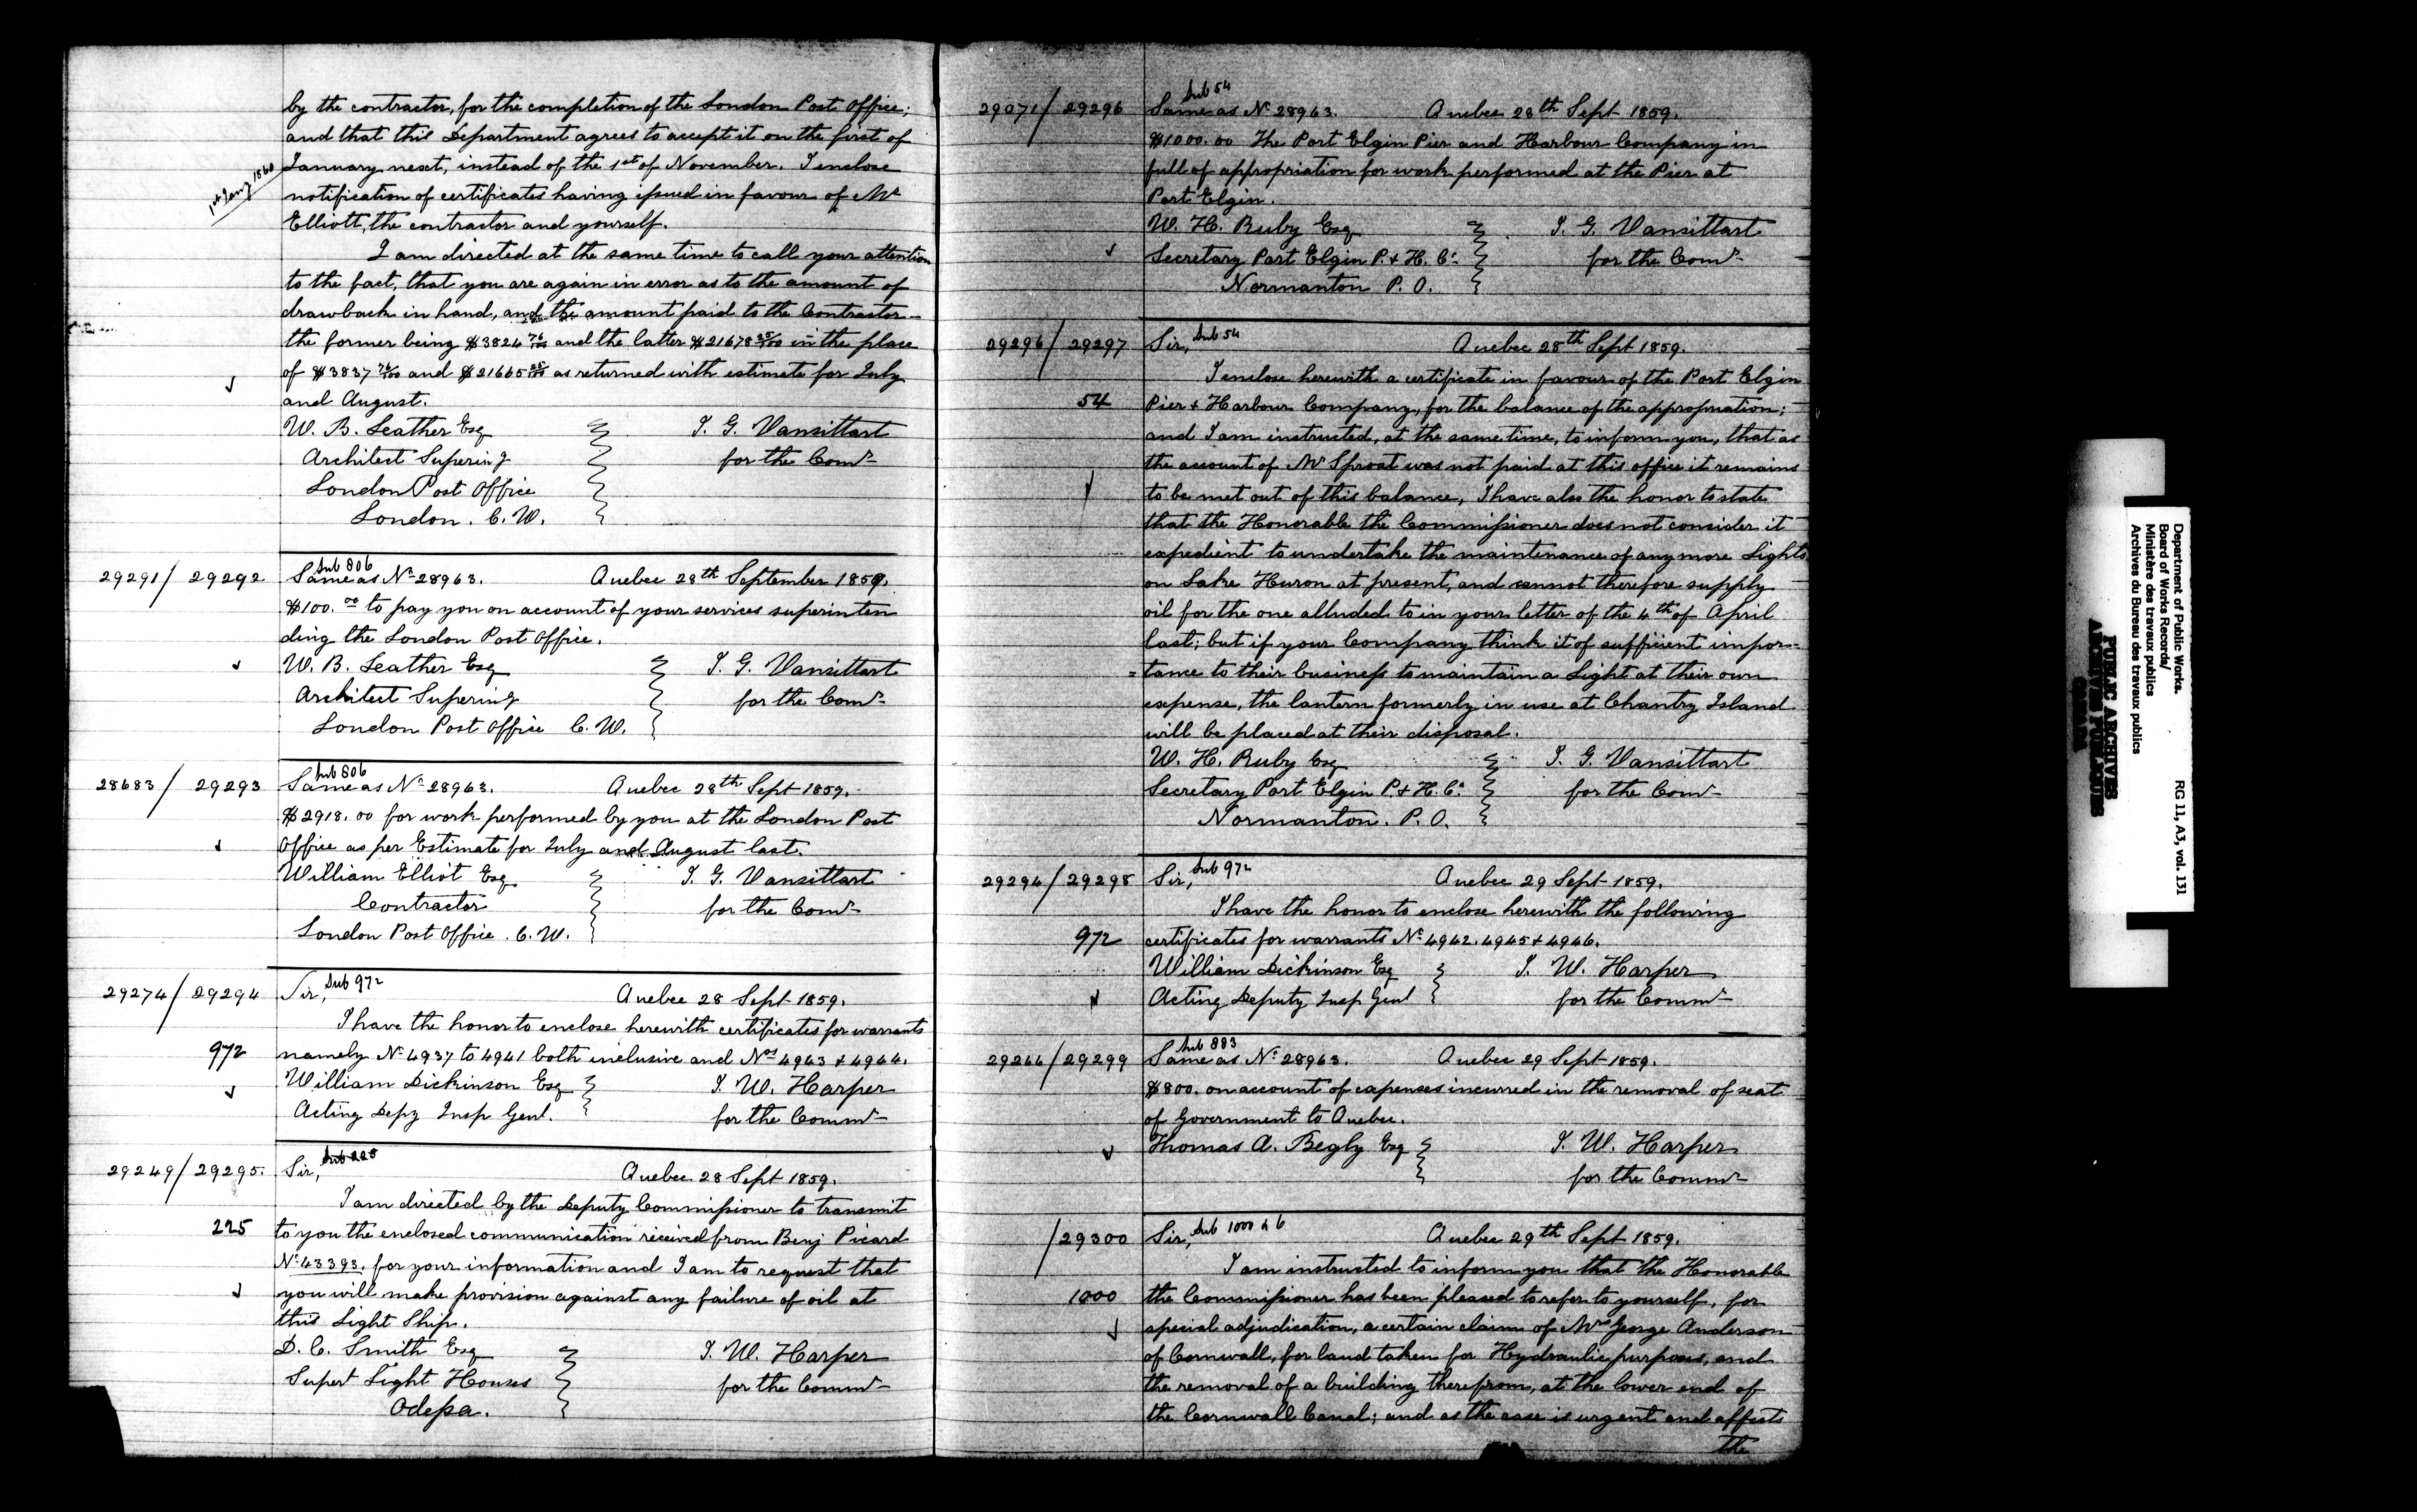 by the contractor, for the completion of the London Post Office;
and that this Department agrees to accept it on the first of
January next, instead of the 1st of November. I enclose
1st Jany 1860
notification of certificates having issued in favour of Mr
Elliott, the contractor and yourself.
I am directed at the same time to call your attention
to the fact, that you are again in error as to the amount of
drawback in hand, and the amount paid to the Contractor—
the former being $3824 76/100 and the latter $21678 25/100 in the place
of $3837 76/100 and $21665 25/100 as returned with estimate for July
and August.
W. B. Leather Esq T. G. Vansittart
Architect Supering for the Comr
London Post Office
London. C. W.
Sub 806
29291/29292 Same as No 28963. Quebec 28th September 1859.
$100.00 to pay you on account of your services superinten
ding the London Post Office.
W. B. Leather Esq T. G. Vansittart
Architect Supering for the Comr
London Post Office C. W.
Sub 806
28683/29293 Same as No 28963. Quebec 28th Sept 1859.
$2918.00 for work performed by you at the London Post
Office as per Estimate for July and August last.
William Elliot Esq T. G. Vansittart
Contractor for the Comr
London Post Office. C. W.
29274/29294 Sir, Sub 972 Quebec 28 Sept 1859.
I have the honor to enclose herewith certificates for warrants
972 namely No 4937 to 4941 both inclusive and Nos 4963 & 4964.
William Dickinson Esq T. W. Harper
Acting Depy Insp Genl. for the Commr
29249/29295. Sir, Sub 225 Quebec 28 Sept 1859.
I am directed by the Deputy Commissioner to transmit
225 to you the enclosed communication received from Benj Picard
No 43393. for your information and I am to request that
you will make provision against any failure of oil at
this Light Ship.
D. C. Smith Esq T. W. Harper
Supert Light Houses for the Commr
Odessa.
Sub 54
29071/29296 Same as No 28963. Quebec 28th Sept 1859.
$1000.00 The Port Elgin Pier and Harbour Company in
full of appropriation for work performed at the Pier at
Port Elgin.
W. H. Ruby Esq T. G. Vansittart
Secretary Port Elgin P. & H. Co for the Comr
Normanton P. O.
29296/29297 Sir, Sub 54 Quebec 28th Sept 1859.
I enclose herewith a certificate in favour of the Port Elgin
54 Pier & Harbour Company, for the balance of the appropriation;
and I am instructed, at the same time, to inform you, that as
the account of Mr Sproat was not paid at this office it remains
to be met out of this balance, I have also the honor to state
that the Honorable the Commissioner does not consider it
expedient to undertake the maintenance of any more Lights
on Lake Huron at present, and cannot therefore supply
oil for the one alluded to in your letter of the 4th of April
last; but if your Company think it of sufficient impor=
=tance to their business to maintain a Light at their own
expense, the lantern formerly in use at Chantry Island
will be placed at their disposal.
W. H. Ruby Esq T. G. Vansittart
Secretary Port Elgin P. & H. Co for the Comr
Normanton. P. O.
29294/29298 Sir, Sub 972 Quebec 29 Sept 1859.
I have the honor to enclose herewith the following
972 certificates for warrants No 4942. 4945 & 4946.
William Dickinson Esq T. W. Harper
Acting Deputy Insp Genl for the Commr
Sub 883
29266/29299 Same as No 28963. Quebec 29 Sept 1859.
$800. on account of expenses incurred in the removal of seat
of Government to Quebec.
Thomas A. Begly Esq T. W. Harper
for the Commr
/29300 Sir, Sub 1000 Quebec 29th Sept 1859.
I am instructed to inform you that the Honorable
1000 the Commissioner has been pleased to refer to yourself, for
special adjudication, a certain claim of Mrs George Anderson
of Cornwall, for land taken for Hydraulic purposes, and
the removal of a building therefrom, at the lower end of
the Cornwall Canal; and as the case is urgent and affects
the
Department of Public Works.
Board of Works Records/
Ministère des travaux publics
Archives du Bureau des travaux publics
RG 11, A3, vol. 131
PUBLIC ARCHIVES
ARCHIVES PUBLIQUES
CANADA